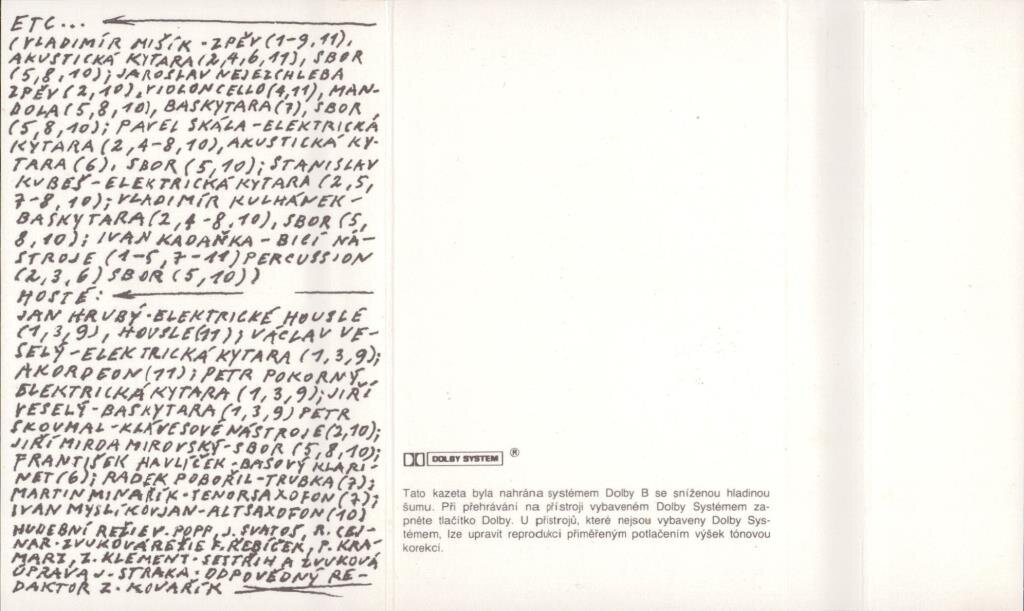 ETC...
(VLADIMÍR MIŠÍK - ZPĚV (1-9,11),
AKUSTICKÁ KYTARA (2,4,6,11), SBOR
(5,8,10); JAROSLAV NEJEZCHLEBA
ZPĚV (2,10), VIOLONCELLO (4,11), MAN-
DOLA (5,8,10), BASKYTARA (7), SBOR
(5,8,10); PAVEL SKÁLA - ELEKTRICKÁ
KYTARA (2,4-8,10), AKUSTICKÁ KY-
TARA (6), SBOR (5,10); STANISLAV
KUBEŠ - ELEKTRICKÁ KYTARA (2,5,
7-8,10); VLADIMÍR KULHÁNEK -
BASKYTARA (2,4-8,10), SBOR (5,
8,10); IVAN KADAŇKA - BICÍ NÁ-
STROJE (1-5,7-11) PERCUSSION
(2,3,6) SBOR (5,10))
HOSTÉ:
JAN HRUBÝ - ELEKTRICKÉ HOUSLE
(1,3,9), HOUSLE (11); VÁCLAV VE-
SELÝ - ELEKTRICKÁ KYTARA (1,3,9);
AKORDEON (11); PETR POKORNÝ
ELEKTRICKÁ KYTARA (1,3,9); JIŘÍ
VESELÝ - BASKYTARA (1,3,9) PETR
SKOUMAL - KLÁVESOVÉ NÁSTROJE (2,10);
JIŘÍ MIRDA MIROVSKÝ - SBOR (5,8,10);
FRANTIŠEK HAVLÍČEK - BASOVÝ KLARI-
NET (6); RADEK POBOŘIL - TRUBKA (7);
MARTIN MINAŘÍK - TENORSAXOFON (7);
IVAN MYSLIKOVJAN - ALTSAXOFON (10)
HUDEBNÍ REŽIE V. POPP, J. SVATOŠ, R. CEJ-
NAR - ZVUKOVÁ REŽIE F. ŘEBÍČEK, P. KRA-
MARZ, Z. KLEMENT - SESTŘIH A ZVUKOVÁ
ÚPRAVA J. STRAKA - ODPOVĚDNÝ RE-
DAKTOR Z. KOVAŘÍK
DOLBY SYSTEM ®
Tato kazeta byla nahrána systémem Dolby B se sníženou hladinou
šumu. Při přehrávání na přístroji vybaveném Dolby Systémem za-
pněte tlačítko Dolby. U přístrojů, které nejsou vybaveny Dolby Sys-
témem, lze upravit reprodukci přiměřeným potlačením výšek tónovou
korekcí.